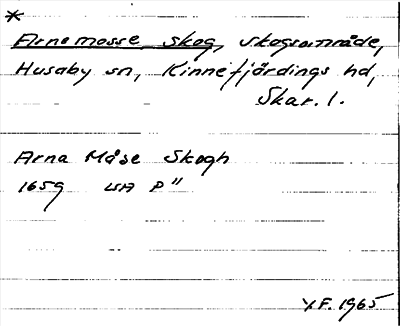 *
Arnemosse skog, skogsområde,
Husaby sn, Kinnefjärdings hd,
Skar. l.
Arna Måse Skogh
1659 LSA P"
Y.F. 1965